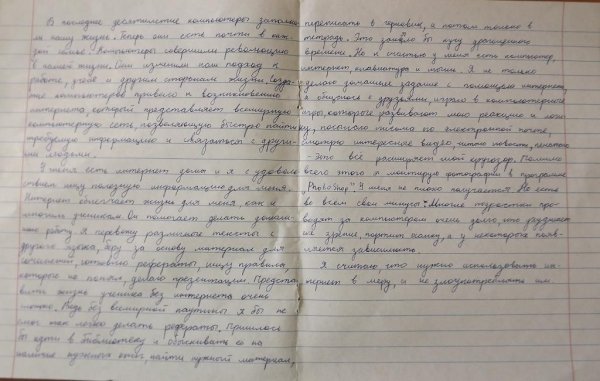 В последнее десятилетие компьютеры заполни-
ли нашу жизнь. Теперь они есть почти в каж-
дой семье. Компьютеры совершили революцию
в нашей жизни. Они изменили наш подход к
работе, учёбе и другим сторонам жизни. Созда-
ние компьютеров привело к возникновению
интернета, который представляет всемирную
компьютерную сеть, позволяющую быстро найти
требуемую информацию и связаться с други-
ми людьми.
У меня есть интернет дома и я с удоволь-
ствием ищу полезную информацию для меня.
Интернет облегчает жизнь для меня, как и
многим ученикам. Он помогает делать домаш-
нюю работу. Я перевожу различные тексты с
другого языка, беру за основу материал для
сочинений, готовлю рефераты, ищу правила,
которые не понял, делаю презентации. Предста-
вить жизнь ученика без интернета очень
Ведь без всемирной паутины я бы не
смог так легко делать рефераты. Пришлось
бы идти в библиотеку и обыскивать её на
наличие нужных книг, найти нужный материал,
переписать в черновик, а потом только в
тетрадь. Это заняло бы кучу драгоценного
времени. Но к счастью у меня есть компьютер,
интернет, клавиатура и мышь. Я не только
делаю домашнее задание с помощью интернета,
а общаюсь с друзьями, играю в компьютерные
игры, которые развивают мою реакцию и логи-
ку, посылаю письма по электронной почте,
смотрю интересные видео, читаю новости,
Это всё расширяет мой кругозор. Помимо
всего этого я монтирую фотографии в программе
„PhotoShop". У меня не плохо получается. Но есть
во всём свои минусы. Многие подростки про-
водят за компьютером очень долго, что ухудшает
их зрение, портит осанку, а у некоторых появ-
ляется зависимость.
Я считаю, что нужно использовать ин-
тернет в меру, и не злоупотреблять им